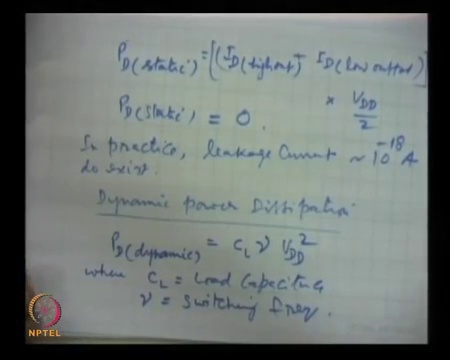 P_D(static) = [(I_D(high out) + I_D(low output)]
× V_DD/2
P_D(static) = 0.
In practice, leakage current ~ 10^-18 A
do exist.
Dynamic power Dissipation
P_D(dynamic) = C_L ν V_DD^2
where C_L = Load Capacitance
ν = switching freq.
NPTEL